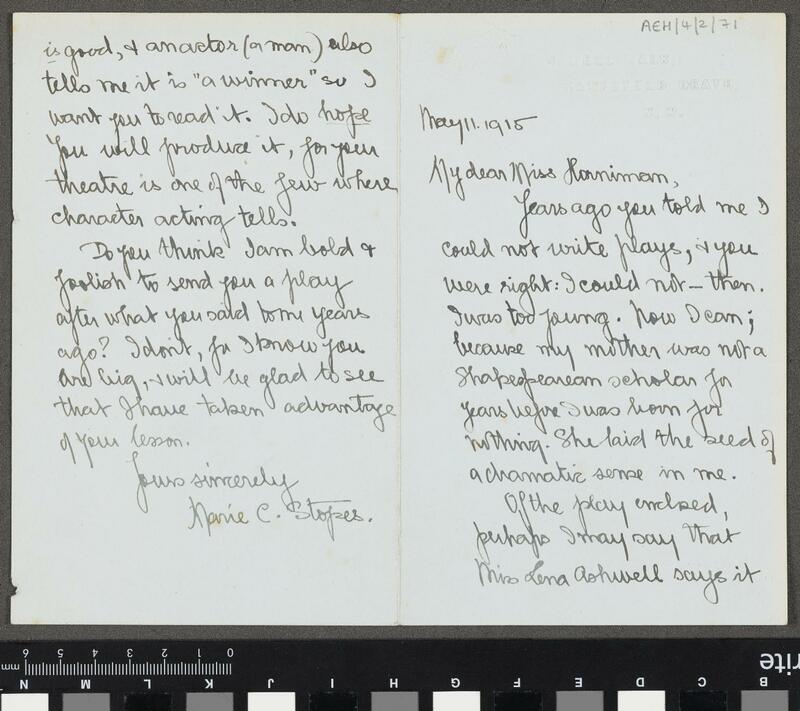 AEH/4/2/71
May 11. 1915
My dear Miss Horniman,
Years ago you told me I
could not write plays, & you
were right: I could not — then.
I was too young. Now I can;
because my mother was not a
Shakespearean scholar for
years before I was born for
nothing. She laid the seed of
a dramatic sense in me.
Of the play enclosed,
perhaps I may say that
Miss Lena Ashwell says it
is good, & an actor (a man) also
tells me it is "a winner" so I
want you to read it. I do hope
you will produce it, for your
theatre is one of the few where
character acting tells.
Do you think I am bold &
foolish to send you a play
after what you said to me years
ago? I don't, for I know you
are big, & will be glad to see
that I have taken advantage
of your lesson.
Yours sincerely
Marie C. Stopes.
mm 6 5 4 3 2 1 0
N M L K J I H G F E D C B
rite